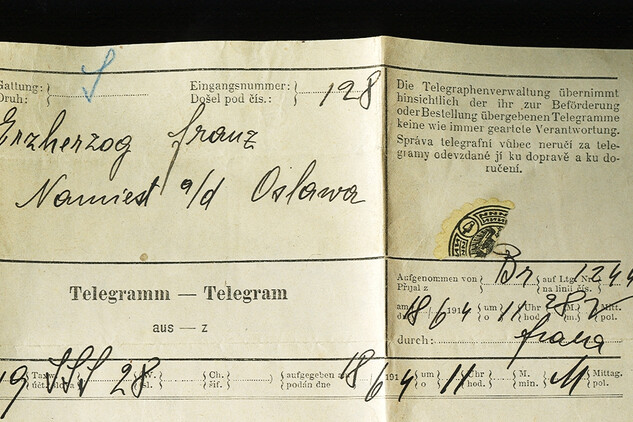 Gattung:
Druh:
Eingangsnummer:
Došel pod čís.:
128
Erzherzog Franz
Namiest a/d Oslawa
Die Telegraphenverwaltung übernimmt
hinsichtlich der ihr zur Beförderung
oder Bestellung übergebenen Telegramme
keine wie immer geartete Verantwortung.
Správa telegrafní vůbec neručí za tele-
gramy odevzdané jí ku dopravě a ku do-
ručení.
Telegramm — Telegram
aus — z
Aufgenommen von Br auf Ltg. Nr. 1244
Přijal z na linii čís.
am 18/6 1914 um 11 Uhr 28 M. Mitt.
o hod. m. pol.
durch:
19 Taxw. 28 W. Ch. aufgegeben 18/6 1914 um 11 Uhr M. M Mittag.
účt. slova sl. šif. podán dne o hod. min. pol.